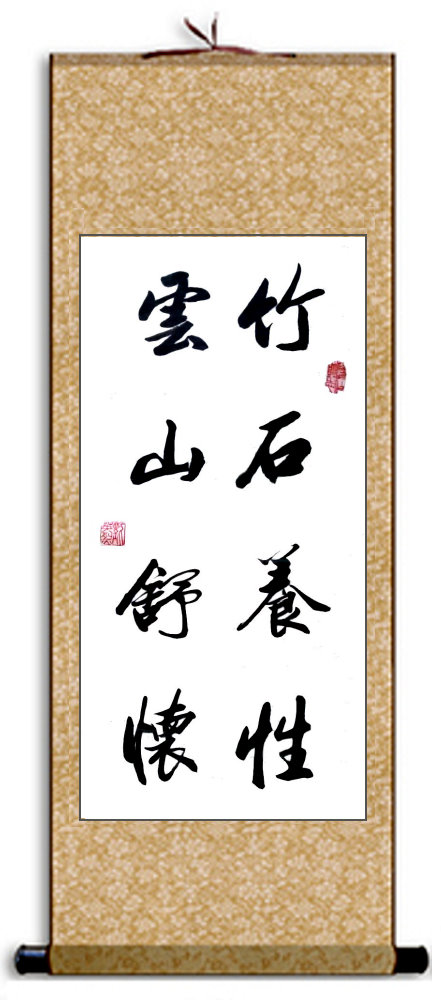 竹石養性
雲山舒懷